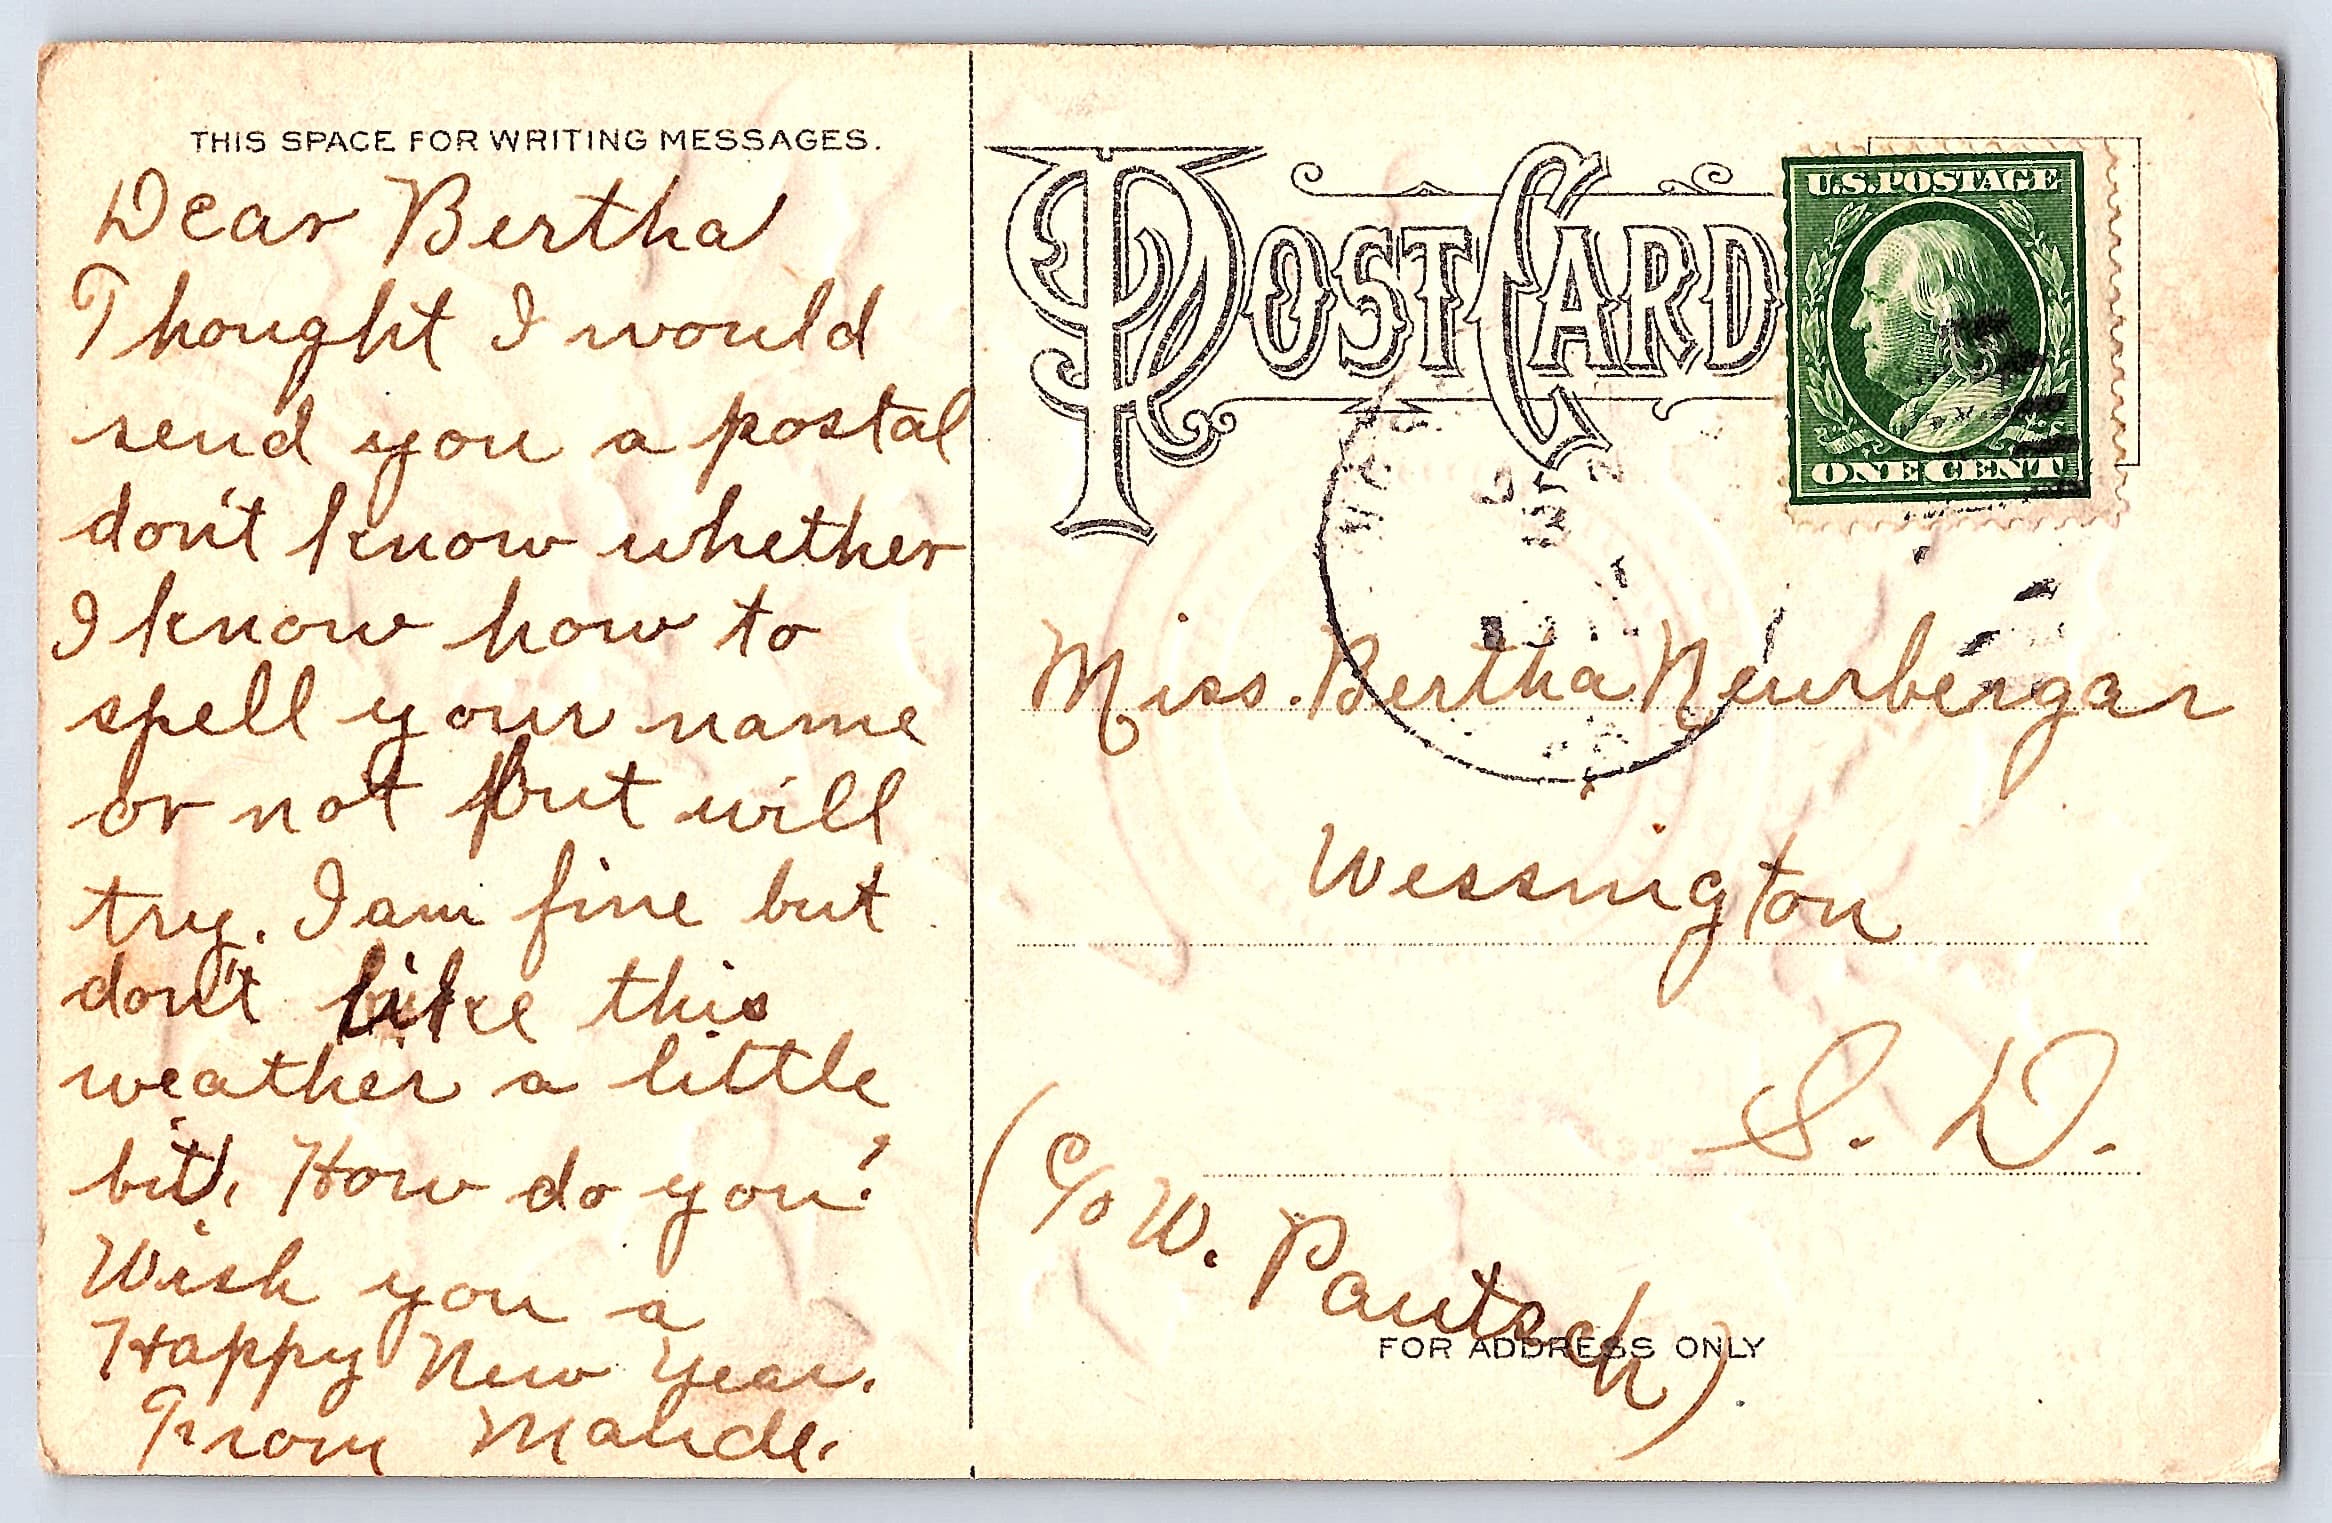 THIS SPACE FOR WRITING MESSAGES.
Dear Bertha
Thought I would
send you a postal
don't know whether
I know how to
spell your name
or not but will
try. I am fine but
don't like this
weather a little
bit. How do you?
Wish you a
Happy New Year.
From Maude.
POST CARD
U.S. POSTAGE
ONE CENT
Miss. Bertha Neurbergar
Wessington
S. D.
(c/o W. Pautsch).
FOR ADDRESS ONLY